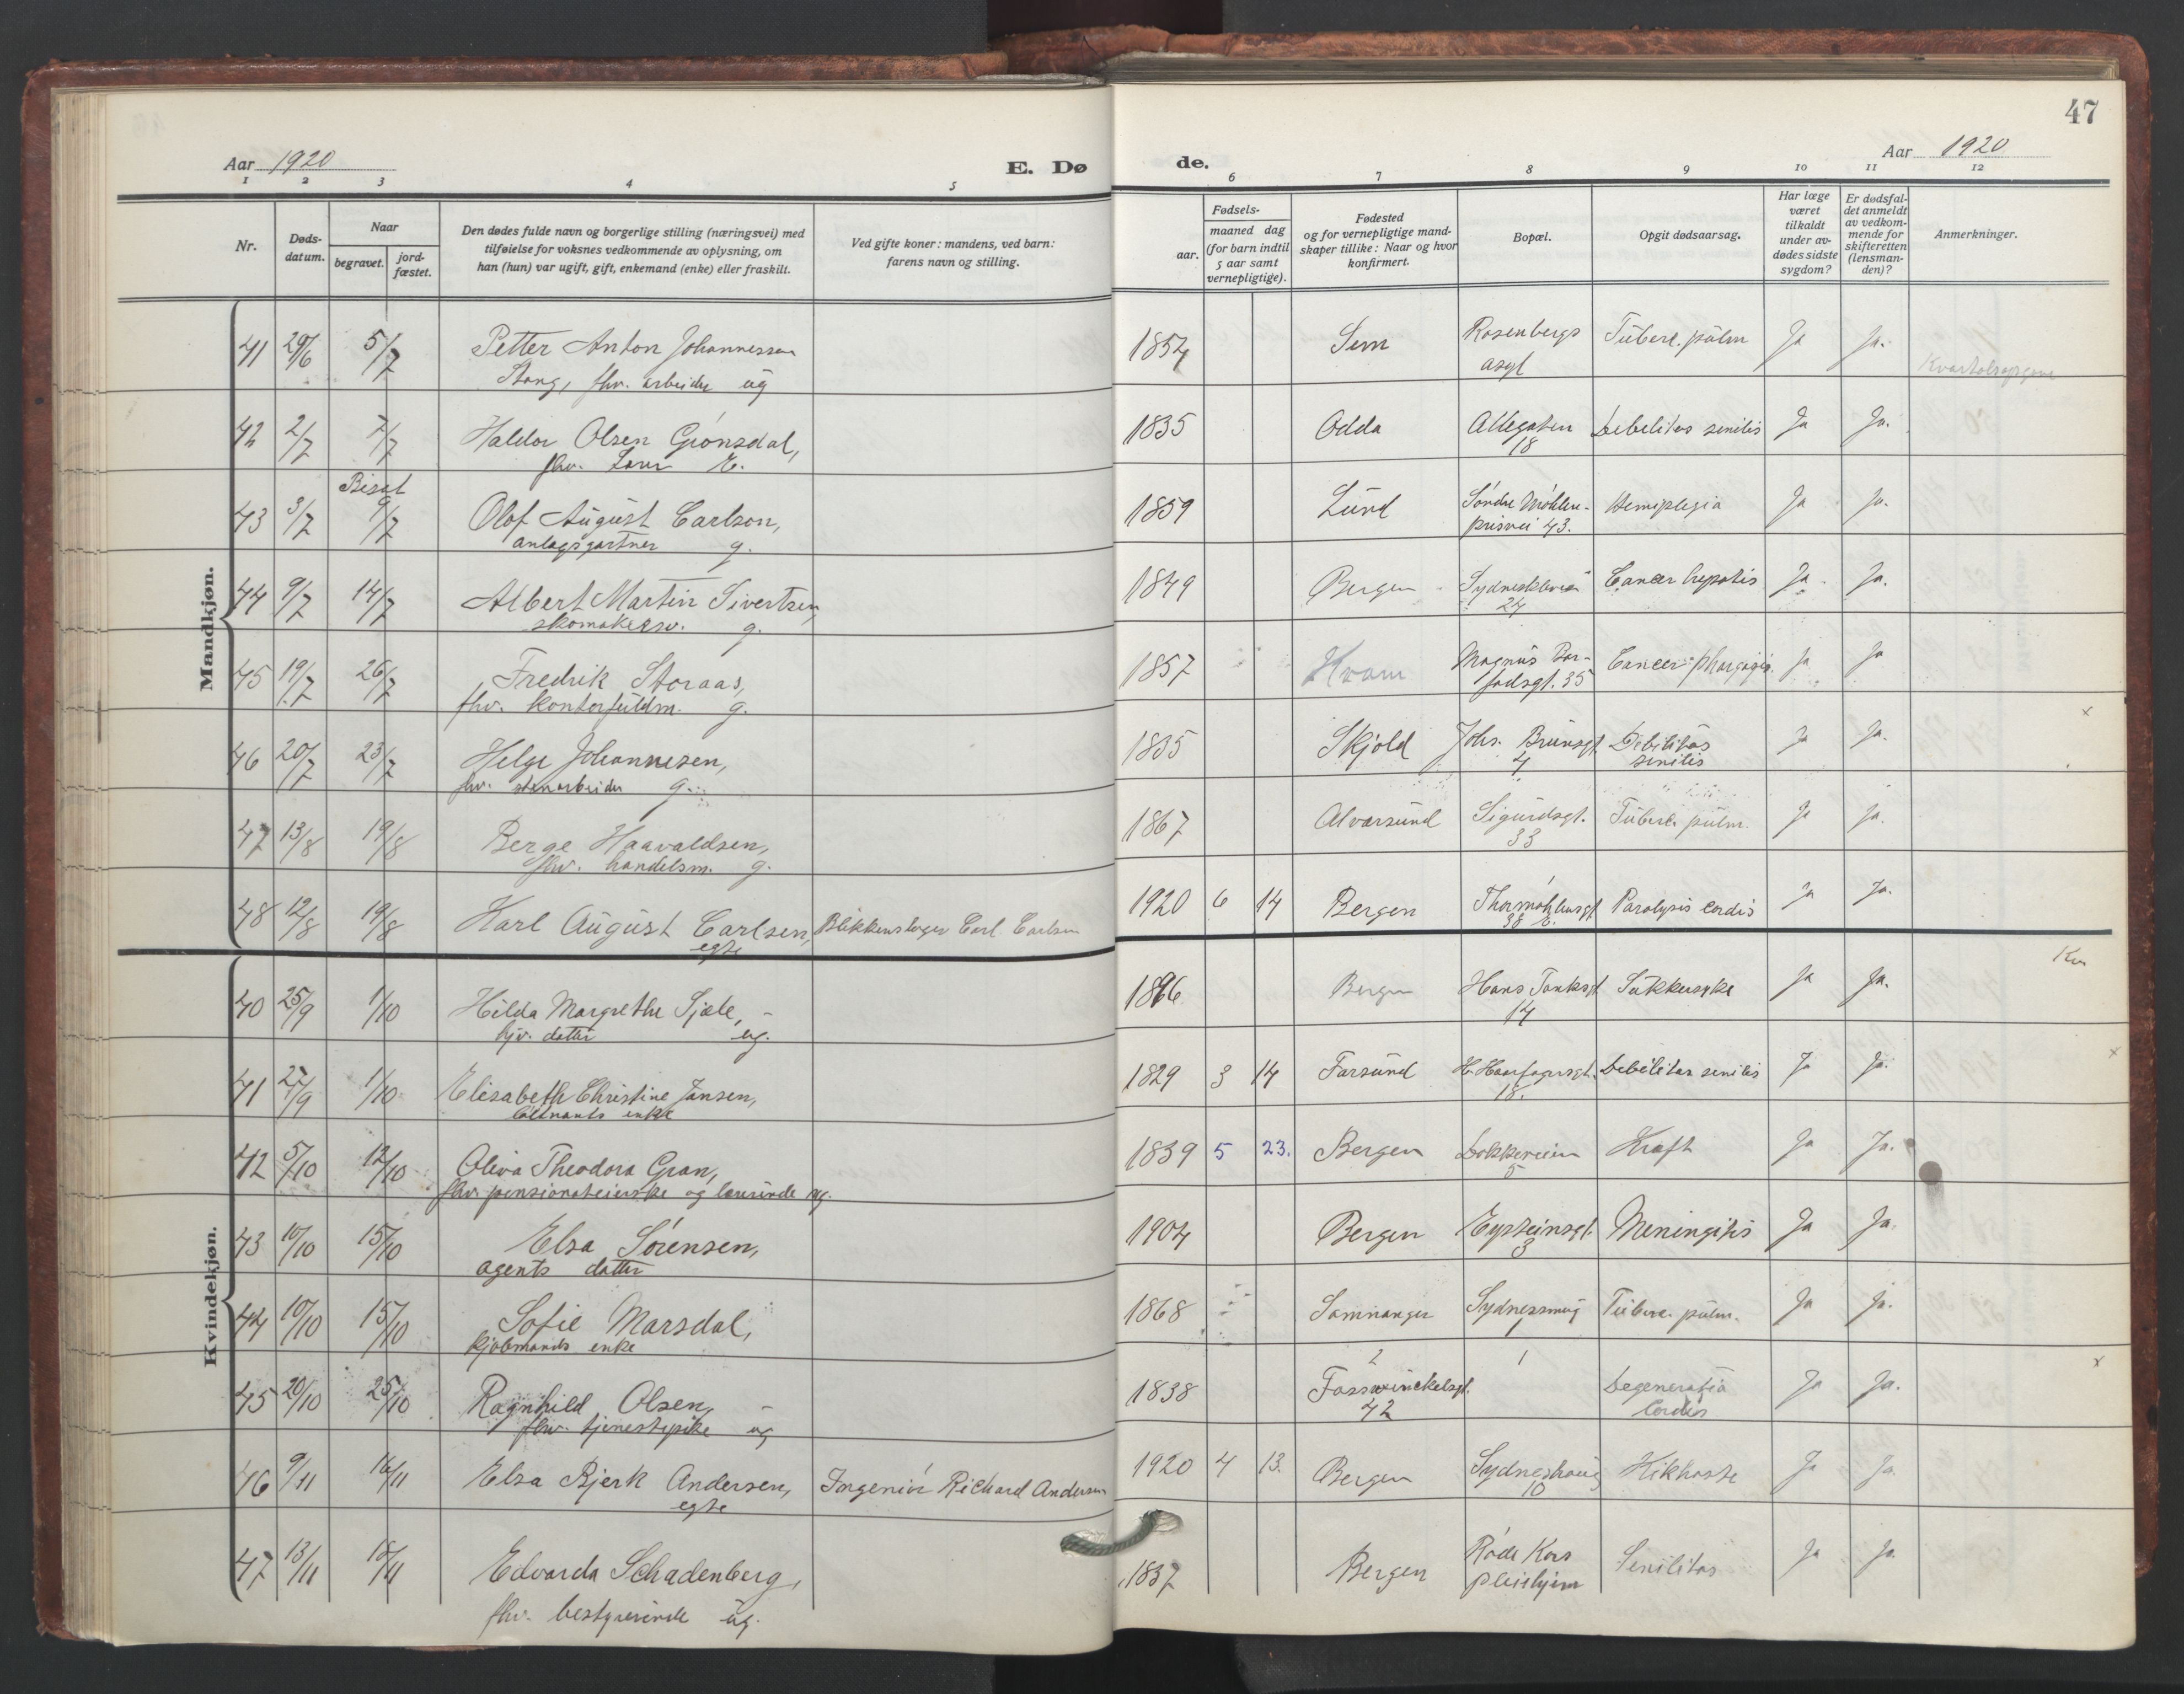 47
Aar 1920
E. Dø
de.
Aar 1920
1 2 3 4 5 6 7 8 9 10 11 12
Nr.
Døds-
datum.
Naar
begravet.
jord-
fæstet.
Den dødes fulde navn og borgerlige stilling (næringsvei) med
tilføielse for voksnes vedkommende av oplysning, om
han (hun) var ugift, gift, enkemand (enke) eller fraskilt.
Ved gifte koner: mandens, ved barn:
farens navn og stilling.
Fødsels-
aar.
maaned dag
(for barn indtil
5 aar samt
vernepligtige).
Fødested
og for vernepligtige mand-
skaper tillike: Naar og hvor
konfirmert.
Bopæl.
Opgit dødsaarsag.
Har læge
været
tilkaldt
under av-
dødes sidste
sygdom?
Er dødsfal-
det anmeldt
av vedkom-
mende for
skifteretten
(lensman-
den)?
Anmerkninger.
Mandkjøn.
41 29/6 5/7 Petter Anton Johannessen 1854 Sem Rosenbergs Tuberc. pulm Ja Ja.
Stang, fhv. arbeider ug asyl
Kvartalsopgave
42 2/7 7/7 Haldor Olsen Grønsdal, 1835 Odda Allegaten Debilitas senilis Ja Ja.
fhv. E. 18
Bisat
43 3/7 9/7 Olof August Carlson, 1859 Lund Søndre Møhlen- Hemiplegia Ja Ja.
anlagsgartner g. prisvei 43.
44 9/7 14/7 Albert Martin Sivertsen, 1849 Bergen Sydneskleven Cancer hepatis Ja Ja.
skomakersv. g. 24
45 19/7 26/7 Fredrik Storaas, 1857 Hvam Magnus Bar- Cancer Ja Ja
fhv. kontorfuldm. g. fodsgt. 35
x
46 20/7 23/7 Helge Johannesen, 1835 Skjold Johs. Brunsgt. Debilitas Ja Ja.
fhv. stenarbeider g. 4 senilis
47 13/8 19/8 Berge Haavaldsen, 1867 Alvarsund Sigurdsgt. Tuberc. pulm. Ja Ja.
fhv. handelsm. g. 33
48 12/8 19/8 Karl August Carlsen, Blikkenslager Carl Carlsen 1920 6 14 Bergen Thormøhlensgt Paralysis cordis Ja Ja.
egte 38
Kvindekjøn.
Kv.
40 25/9 1/10 Hilda Margrethe Sjøle, 1896 Bergen Hans Tanksgt. Sukkersyke Ja Ja.
hjv. datter ug. 14
x
41 27/9 1/10 Elisabeth Christine Jansen, 1829 3 14 Farsund H. Haarfagersgt. Debilitas senilis Ja Ja.
enke 18.
42 5/10 12/10 Oliva Theodora Gran, 1839 5 23. Bergen Dokkeveien Kræft Ja Ja.
fhv. pensionateierske og lærerinde ug. 5
43 10/10 15/10 Elsa Sørensen, 1904 Bergen Eysteinsgt. Meningitis Ja Ja.
agents datter 3
44 10/10 15/10 Sofie Marsdal, 1868 Samnanger Sydnessmug Tuberc. pulm. Ja Ja.
kjøbmands enke 1
x
45 20/10 25/10 Ragnhild Olsen, 1838 Fosswinckelsgt. Degeneratio Ja Ja.
fhv. tjenestepike ug 42 Cordis
46 9/11 16/11 Elsa Bjerk Andersen, Ingeniør Richard Andersen 1920 4 13. Bergen Sydneshaug Kikhoste Ja Ja
egte 10
47 13/11 18/11 Edvarda Schadenberg, 1837 Bergen Røde Kors Senilitas Ja Ja
fhv. bestyrerinde ug. pleiehjem